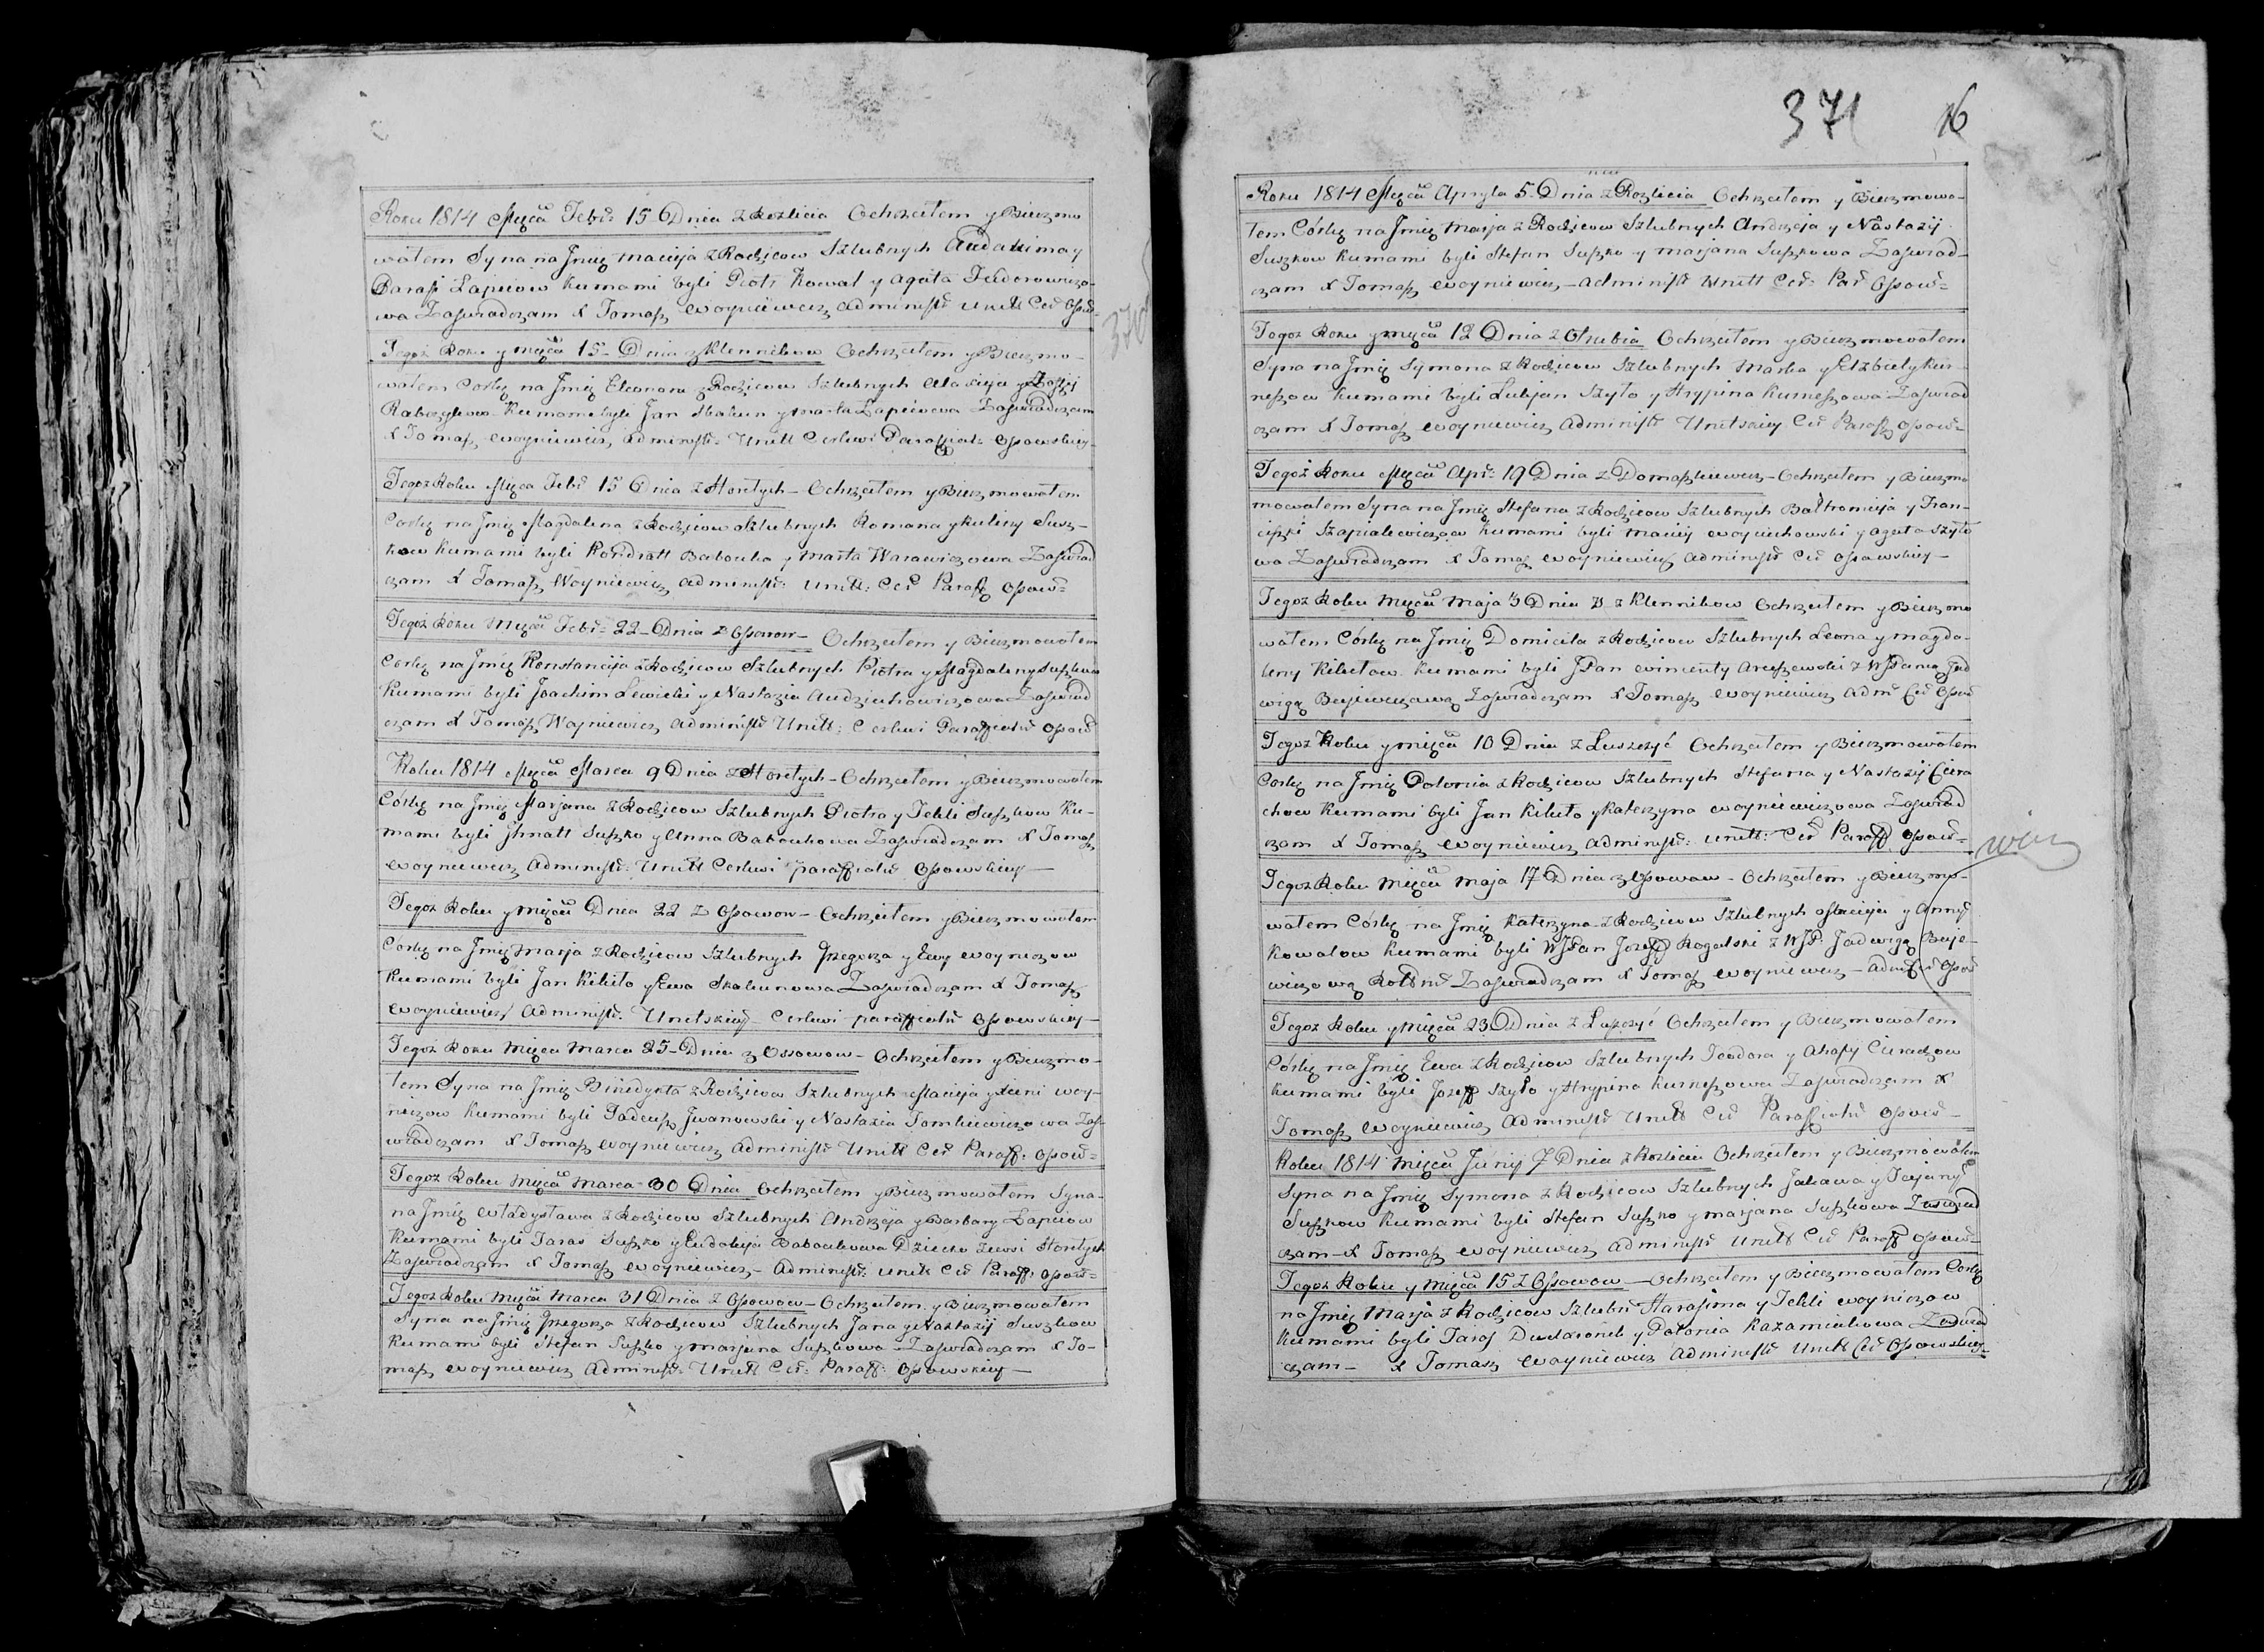 Roku 1814 Mięcā Febr: 15 Dnia z Kozlicia Ochrzciłem y Bierzmo
wałem Syna na Jmię Macieja z Rodzicow Szlubnych Audakima y
Parasi Łapiciow Kumami byli Piotr Kowal y Agata Fiedorowiczo-
wa Zaswiadczam X Tomasz Woyniewicz Administr Unitt Cer Ossow-
Tegoż Roku y Mięcā 15 Dnia z Klennikow Ochrzciłem y Bierzmo-
wałem Corkę na Jmię Eleonora z Rodzicow Szlubnych y Zofiji
Kumami byli Jan Skakun y Marta Łapiciowa Zaswiadczam
X Tomasz Woyniewicz Administr: Unitt Cerkwi Paraffial: Ossowskiey-
Tegoż Roku Mięca Febr 15 Dnia z Horełych - Ochrzciłem y Bierzmowałem
Corkę na Jmię Magdalena z Rodzicow Szlubnych Romana y Kuliny Susz-
kow Kumami byli Kondratt Babouka y Marta Warawiczowa Zaswiad
czam X Tomasz Woyniewicz Administr: Unitt: Cer Paraff Ossow-
Tegoż Roku Mięcā Febr- 22- Dnia z Ossowow- Ochrzciłem y Bierzmowałem
Corkę na Jmię Konstancija z Rodzicow Szlubnych Piotra y Magdaleny Suszkow
Kumami byli Joachim Lewicki y Nastazia Audziuchowiczowa Zaswiad
czam X Tomasz Woyniewicz Administr Unitt: Cerkwi Paraffialn Ossow
Roku 1814 Mięcā Marca 9 Dnia z Horełych - Ochrzciłem y Bierzmowałem
Córkę na Jmię Marjana z Rodzicow Szlubnych Piotra y Tekli Suszkow Ku-
mami byli Jhnatt Suszko y Anna Baboukowa Zaswiadczam X Tomasz
Woyniewicz Administr: Unitt Cerkwi paraffialn Ossowskiey -
Tegoż Roku y Mięcā Dnia 22 z Ossowow - Ochrzciłem y Bierzmowałem
Corkę na Jmię Marja z Rodzicow Szlubnych Grzegorza y Ewy Woyniczow
Kumami byli Jan Kikito y Ewa Skakunowa Zaswiadczam X Tomasz
Woyniewicz Administr. Unitskiey Cerkwi paraffialn Ossowskiey -
Tegoż Roku Mięca Marca 25- Dnia z Ossowow - Ochrzciłem y Bierzmo-
łem Syna na Jmię Binedykta z Rodzicow Szlubnych Macieja y Woy-
niczow Kumami byli Tadeusz Jwanowski y Nastazia Tomkiewiczowa Zas-
wiadczam X Tomasz Woyniewicz Administr Unitt Cer Paraff: Ossow-
Tegoż Roku Mięcā Marca 30 Dnia Ochrzciłem y Bierzmowałem Syna-
na Jmię Władysława z Rodzicow Szlubnych Andrzeja y Barbary Łapiciow
Kumami byli Taras Suszko y Eudokija Baboukowa Dziecko zewsi Horełych
Zaswiadczam X Tomasz Woyniewicz - Administr: Unitt Cer Paraff: Ossow-
Tegoż Roku Mięcā Marca 31 Dnia z Ossowow - Ochrzciłem y Bierzmowałem
Syna na Jmię Grzegorza z Rodzicow Szlubnych Jana y Nastazij Suszkow
Kumami byli Stefan Suszko y Marjana Suszkowa Zaswiadczam X To-
masz Woyniewicz Administr: Unitt Cer: Paraff: Ossowskiey -
370
371 16
Roku 1814 Mięcā Apryla 5 Dnia z Kozlicia Ochrzciłem y Bierzmowa-
łem Córkę na Jmię Marja z Rodzicow Szlubnych Andrzeja y Nastazij
Suszkow Kumami byli Stefan Suszko y Marjana Suszkowa Zaswiad-
czam X Tomasz Woyniewicz - Administr Unitt Cer: Par Ossow-
Tegoż Roku y Mięcā 12 Dnia z Ochrzciłem y Bierzmowałem
Syna na Jmię Symona z Rodzicow Szlubnych Marka y Elzbiety Kur-
neszow Kumami byli Lukjan Szyło y Hrypina Kurneszowa Zaswiad
czam X Tomasz Woyniewicz Administr Unitskiey Cer Paraff Ossow-
Tegoż Roku Mięcā Apr: 19 Dnia z Domaszkiewicz - Ochrzciłem y Bierzmo
mowałem Syna na Jmię Stefana z Rodzicow Szlubnych Bałtromieja y Fran-
ciszki Szapialewiczow Kumami byli Maciey Woyciechowski y Agata Szyło
wa Zaswiadczam X Tomasz Woyniewicz Administr Cer Ossowskiey -
Tegoż Roku Mięcā Maja 3 Dnia z Klennikow Ochrzciłem y Bierzmo
wałem Córkę na Jmię Domicila z Rodzicow Szlubnych Leona y Magda-
leny Kikitow Kumami byli JPan Wincenty Aruszewski z WJPanią Jad
wigą Bujewiczawą Zaswiadczam X Tomasz Woyniewicz Adm Cer Ossow
Tegoż Roku y Mięcā 10 Dnia z Łuszczyć Ochrzciłem y Bierzmowałem
Corkę na Jmię Polonia z Rodzicow Szlubnych Stefana y Nastazij Ciera
chow Kumami byli Jan Kikito y Katerzyna Woyniewiczowa Zaswiad
czam X Tomasz Woyniewicz Administr: Unitt: Cer Paraff Ossow-
Tegoż Roku Mięcā Maja 17 Dnia z Ossowow - Ochrzciłem y Bierzmo-
wałem Córkę na Jmię Katerzyna z Rodzicow Szlubnych Macieja y Anny
Kowalow Kumami byli WJPan Jozeff Rogalski z WJP. Jadwigą Buje-
wiczową Zaswiadczam X Tomasz Woyniewicz - Adm Cer Ossow
Tegoż Roku y Mięcā 23 Dnia z Łuszczyć Ochrzciłem y Bierzmowałem
Córkę na Jmię Ewa z Rodzicow Szlubnych Teodora y Ahafij
Kumami byli Jozeff Szyło y Hrypina Kurneszowa Zaswiadczam X
Tomasz Woyniewicz Administr Unitt Cer Paraffialn Ossow-
Roku 1814 Mięcā Junij 7 Dnia z Kozlicia Ochrzciłem y Bierzmowałem
Syna na Jmię Symona z Rodzicow Szlubnych Jakawa y Taciany
Suszkow Kumami byli Stefan Suszko y Marjana Suszkowa Zaswiad
czam - X Tomasz Woyniewicz Administr Unitt Cer Paraff Ossow-
Tegoż Roku y Mięcā 15 z Ossowow - Ochrzciłem y Bierzmowałem Corkę
na Jmię Marja z Rodzicow Szlubn Harasima y Tekli Woyniczow
Kumami byli Taras Dudaronek y Polonia Kazamiakowa Zaswiad
czam - X Tomasz Woyniewicz Administr Unitt Cer Ossowskiey-